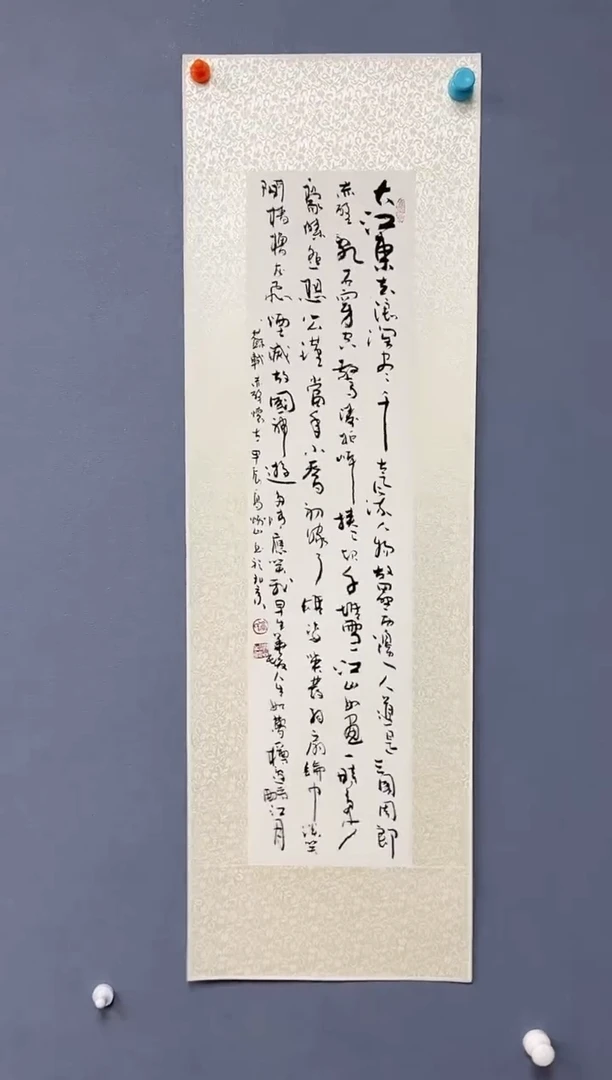 大江東去浪淘盡千古風流人物故壘西邊人道是三國周郎
赤壁亂石穿空驚濤拍岸捲起千堆雪江山如畫一時多少
豪傑遥想公瑾當年小喬初嫁了雄姿英發羽扇綸巾談笑
間檣櫓灰飛煙滅故國神遊多情應笑我早生華髮人生如夢一樽還酹江月
蘇軾赤壁懷古甲辰山书於北京